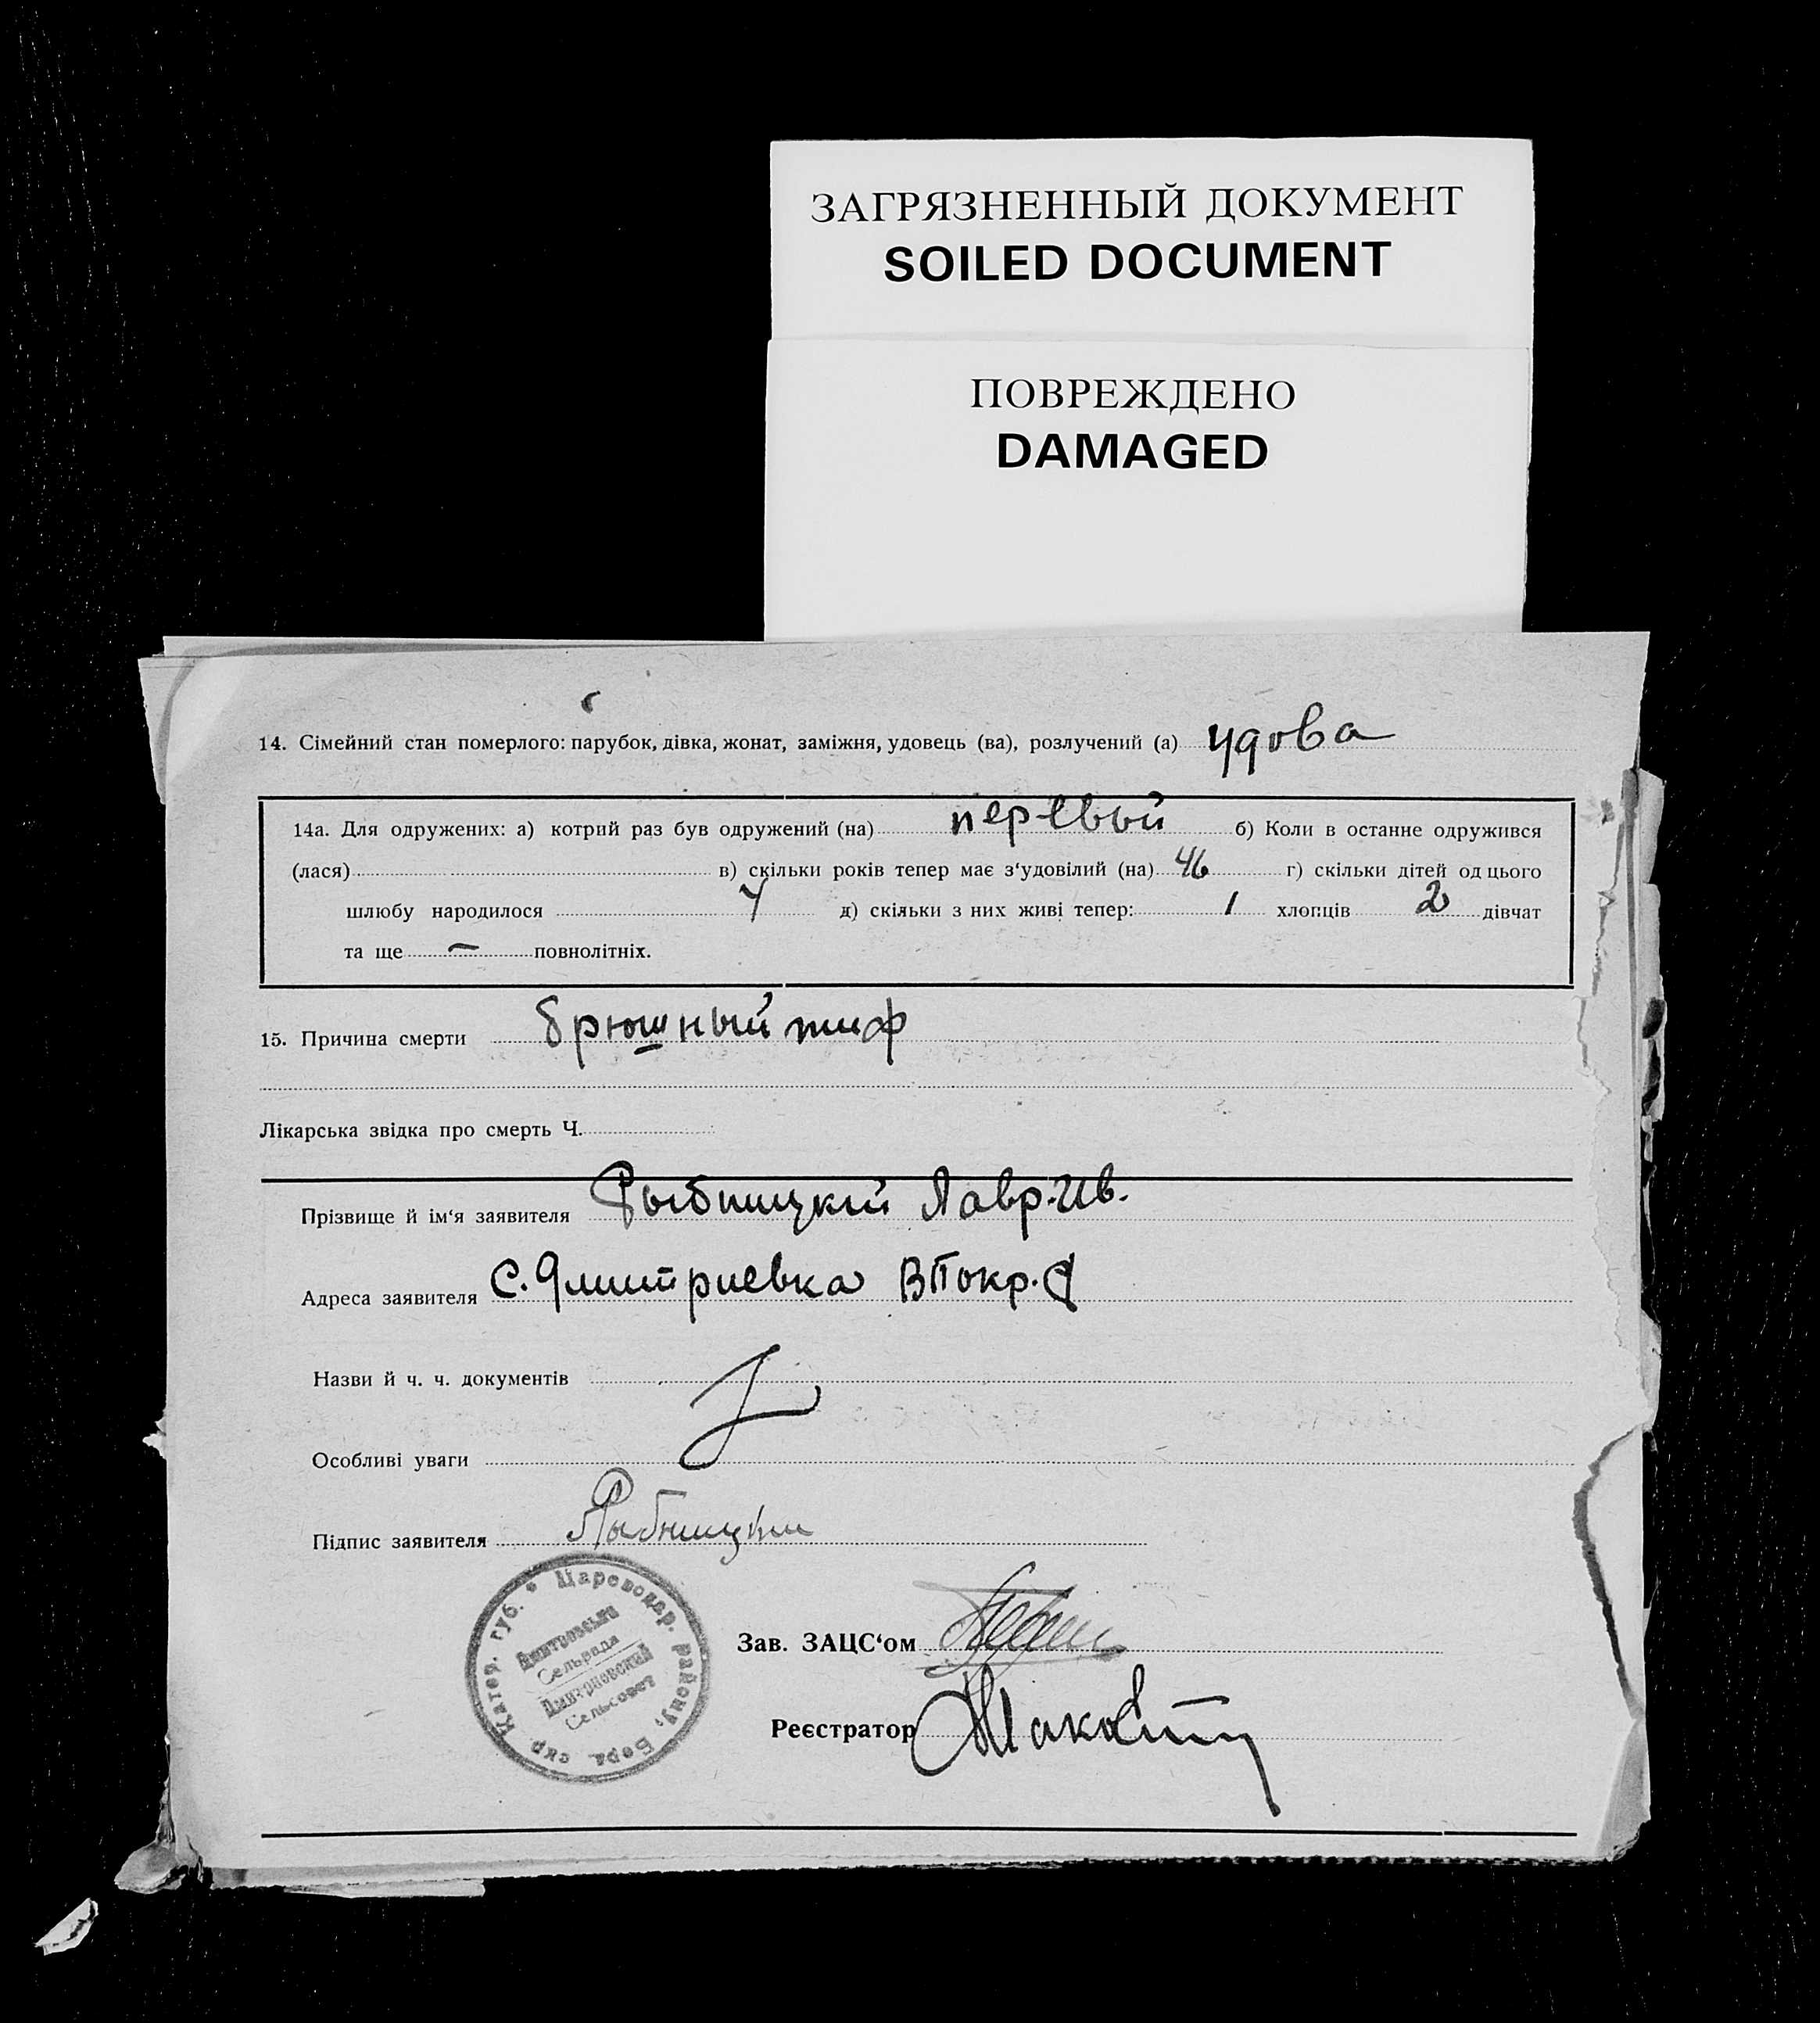 ЗАГРЯЗНЕННЫЙ ДОКУМЕНТ
SOILED DOCUMENT
ПОВРЕЖДЕНО
DAMAGED
14. Сімейний стан померлого: парубок, дівка, жонат, заміжня, удовець (ва), розлучений (а) удова
14а. Для одружених: а) котрий раз був одружений (на) первый б) Коли в останне одружився
(лася) в) скільки років тепер має з‘удовілий (на) 46 г) скільки дітей од цього
шлюбу народилося 4 д) скільки з них живі тепер: 1 хлопців 2 дівчат
та ще — повнолітніх.
15. Причина смерти брюшный тиф
Лікарська звідка про смерть Ч.
Прізвище й ім‘я заявителя Рыбницкий Лавр. Ив.
Адреса заявителя С. Дмитриевка ВПокр.
Назви й ч. ч. документів
Особливі уваги
Підпис заявителя Рыбницкий
Царевокар. району, Берд. окр. Катер. губ. *
Дмитровська
Сельрада
Дмитриевский
Сельсовет
Зав. ЗАЦС‘ом
Реєстратор